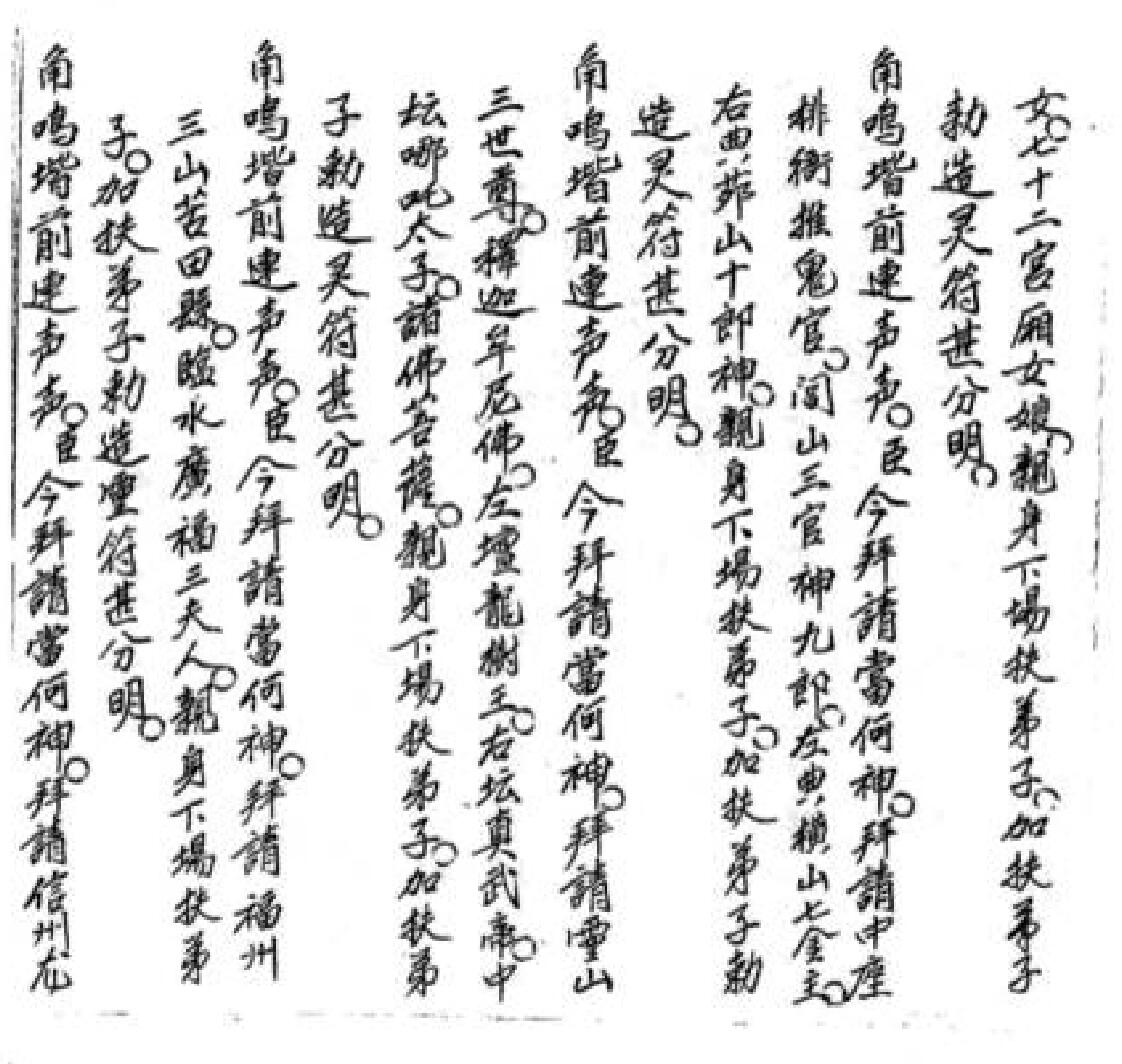 女。七十二宮廂女娘。親身下場扶弟子。加扶弟子
勅造灵符甚分明。
角鳴堦前連声声。臣今拜請當何神。拜請中座
排衙推鬼官。閭山三官神九郎。左典橫山七金主。
右典茆山十郎神。親身下場扶弟子。加扶弟子勅
造灵符甚分明。
角鳴堦前連声声。臣今拜請當何神。拜請靈山
三世尊。釋迦牟尼佛。左壇龍樹王。右坛真武帝。中
坛哪吒太子。諸佛菩薩。親身下場扶弟子。加扶弟
子勅造灵符甚分明。
角鳴堦前連声声。臣今拜請當何神。拜請福州
三山苦田縣。臨水廣福三夫人。親身下場扶弟
子。加扶弟子勅造靈符甚分明。
角鳴堦前連声声。臣今拜請當何神。拜請信州龙